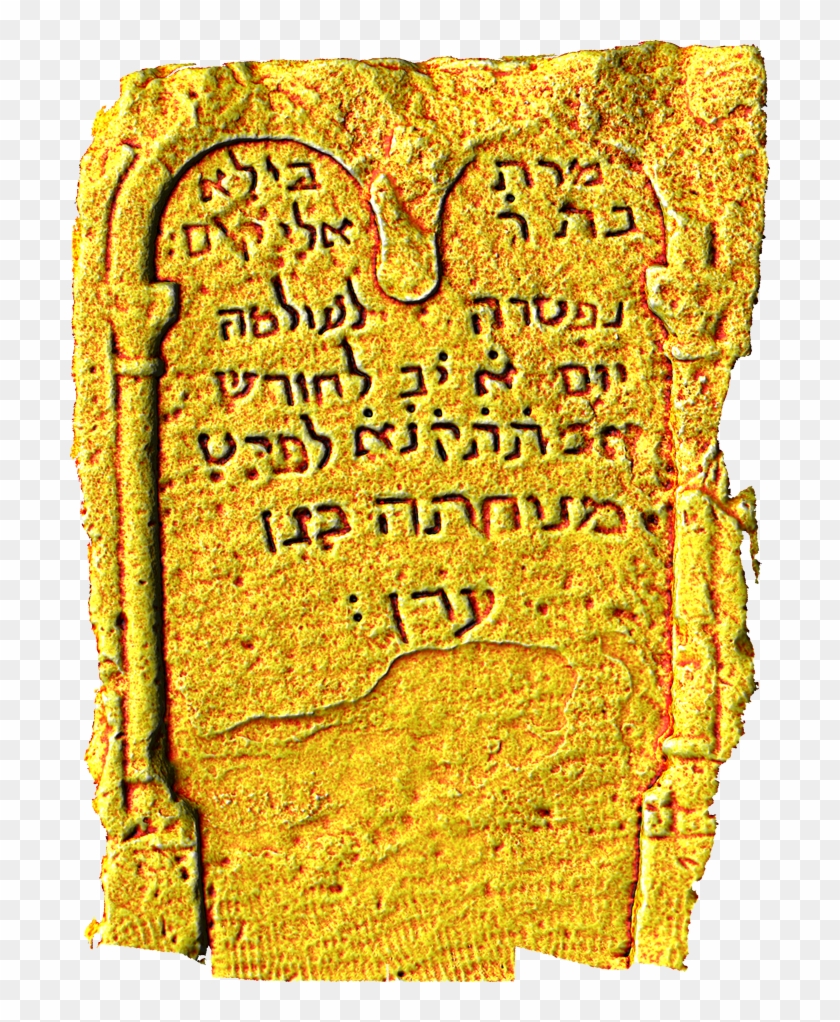 מרת בילא
בת רׄ אליקום:
נפטרה לעולמה
יום אׄ יׄבׄ לחודש
אב תׄתׄקׄנׄאׄ לפרט
מנוחתה בגן
עדן :